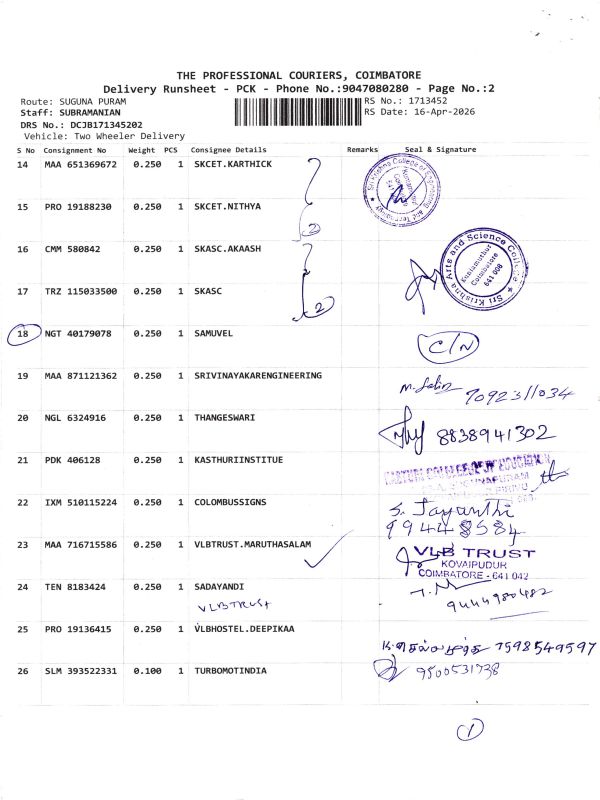 THE PROFESSIONAL COURIERS, COIMBATORE
Delivery Runsheet - PCK - Phone No.:9047080280 - Page No.:2
Route: SUGUNA PURAM RS No.: 1713452
Staff: SUBRAMANIAN RS Date: 16-Apr-2026
DRS No.: DCJB171345202
Vehicle: Two Wheeler Delivery
S No Consignment No Weight PCS Consignee Details Remarks Seal & Signature
14 MAA 651369672 0.250 1 SKCET.KARTHICK
Sri Krishna College of Engineering and Technology
Kuniamuthur
15 PRO 19188230 0.250 1 SKCET.NITHYA
2
16 CMM 580842 0.250 1 SKASC.AKAASH
Sri Krishna Arts and Science College
Kuniamuthur
Coimbatore
641 008
17 TRZ 115033500 0.250 1 SKASC
2
18 NGT 40179078 0.250 1 SAMUVEL C/N
19 MAA 871121362 0.250 1 SRIVINAYAKARENGINEERING
7092311034
20 NGL 6324916 0.250 1 THANGESWARI
8838941302
21 PDK 406128 0.250 1 KASTHURIINSTITUE
COLLEGE OF EDUCATION
22 IXM 510115224 0.250 1 COLOMBUSSIGNS
S. Jayanthi
99448584
23 MAA 716715586 0.250 1 VLBTRUST.MARUTHASALAM
VLB TRUST
KOVAIPUDUR
COIMBATORE - 641 042
24 TEN 8183424 0.250 1 SADAYANDI
VLBTRUST
9444980482
25 PRO 19136415 0.250 1 VLBHOSTEL.DEEPIKAA
7598549597
26 SLM 393522331 0.100 1 TURBOMOTINDIA
9500531738
1